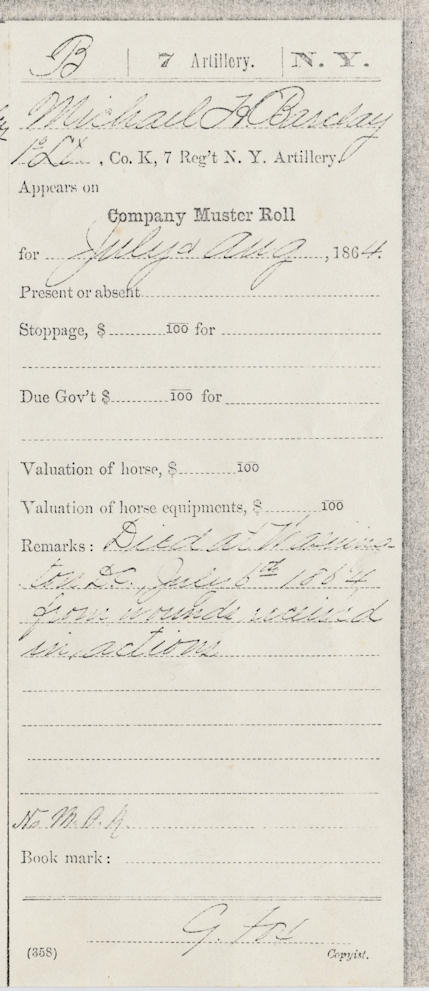 B | 7 Artillery. | N. Y.
Michael H Barclay
1st Lt , Co. K, 7 Reg't N. Y. Artillery.
Appears on
Company Muster Roll
for July & Aug , 1864.
Present or absent
Stoppage, $ 100 for
Due Gov't $ 100 for
Valuation of horse, $ 100
Valuation of horse equipments, $ 100
Remarks: Died at Washing-
ton D.C. July 6th 1864
from wounds received
in actions
Book mark:
G. Fox
(358) Copyist.